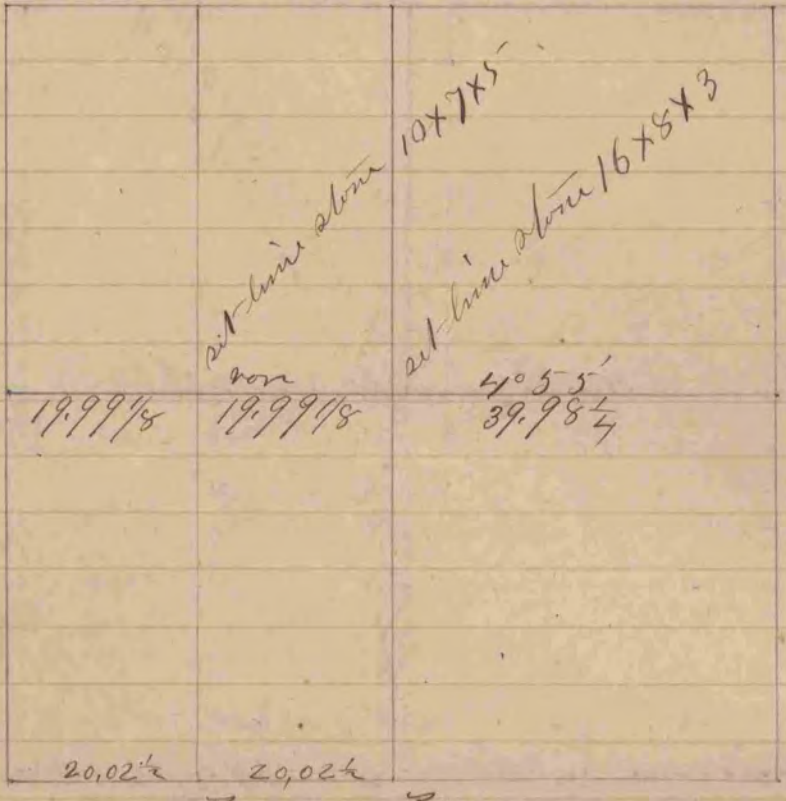 set lime stone 10x7x5
set lime stone 16x8x3
4° 55'
19.99 1/8 19.99 1/8 39.98 1/4
20,02 1/2 20,02 1/2